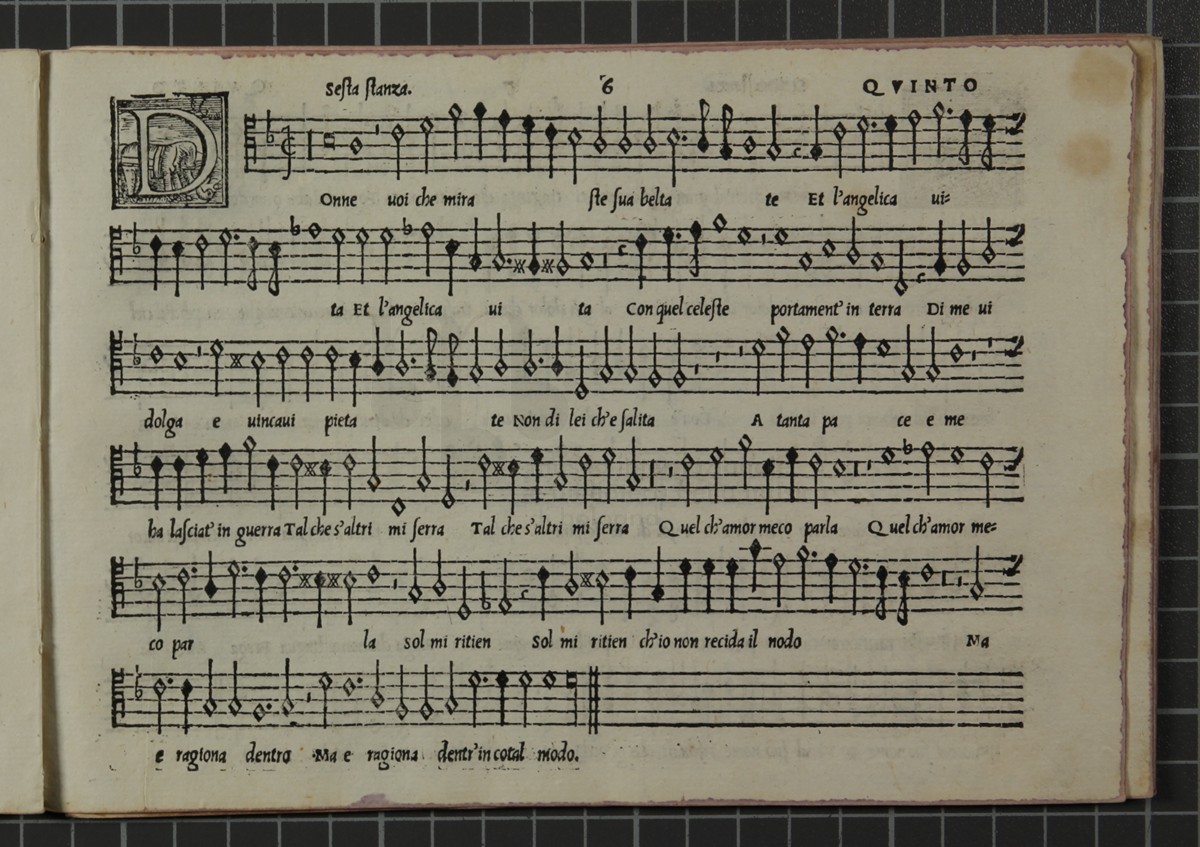 Sesta stanza. 6 QVINTO
DOnne uoi che mira ste sua belta te Et l'angelica ui=
ta Et l'angelica ui ta Con quel celeste portament' in terra Di me ui
dolga e uincaui pieta te Non di lei ch'e salita A tanta pa ce e me
ha lasciat' in guerra Tal che s'altri mi serra Tal che s'altri mi serra Quel ch'amor meco parla Quel ch'amor me=
co par la Sol mi ritien Sol mi ritien ch'io non recida il nodo Ma
e ragiona dentro Ma e ragiona dentr' in cotal modo.